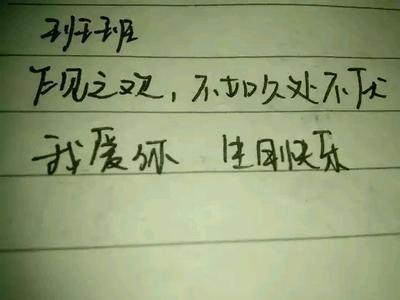 班班
乍见之欢，不如久处不厌
我爱你 生日快乐